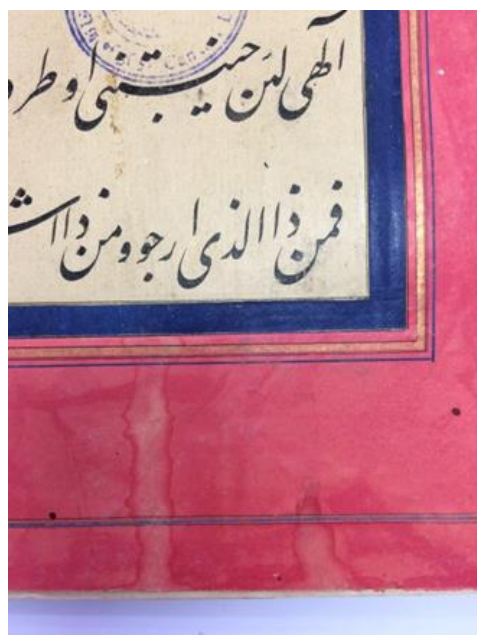 الهی لئن خیبتنی او طرد
فمن ذا الذی ارجو و من ذا اش